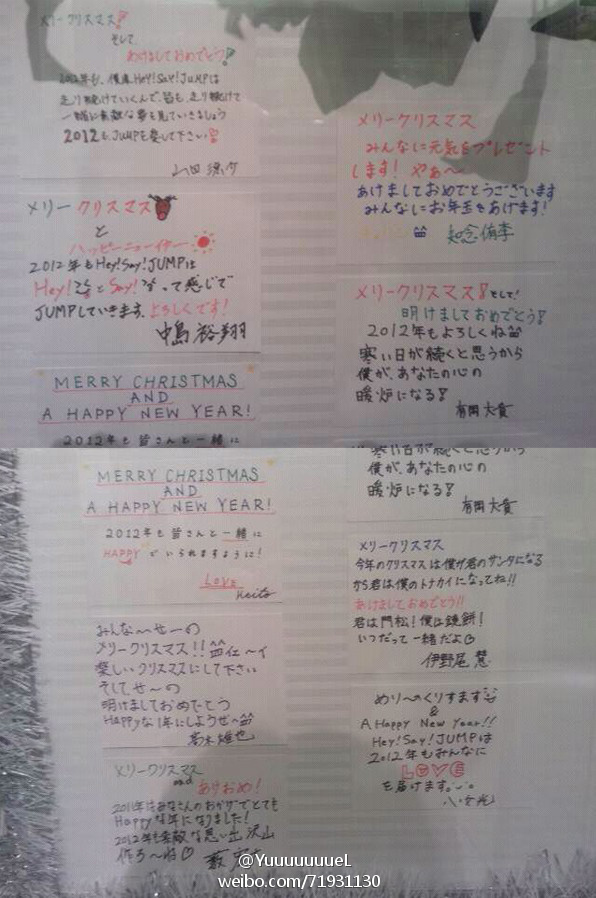 メリークリスマス!
そして、
あけましておめでとう!
2012年も、僕達Hey!Say!JUMPは
走り続けていくんで、皆も、走り続けて
一緒に素敵な夢を見ていきましょう
2012も、JUMPを愛して下さい
山田涼介
メリークリスマス
と
ハッピーニューイヤー
2012年もHey!Say!JUMPは
Hey!
って感じで
JUMPしていきます、よろしくです!
中島裕翔
MERRY CHRISTMAS
AND
A HAPPY NEW YEAR!
2012年も皆さんと一緒に
メリークリスマス
みんなに元気をプレゼント
します! やぁ〜
あけましておめでとうございます
みんなにお年玉をあげます!
知念侑李
メリークリスマス!そして!
明けましておめでとう!
2012年もよろしくね
寒い日が続くと思うから
僕が、あなたの心の
暖炉になる!
有岡大貴
MERRY CHRISTMAS
AND
A HAPPY NEW YEAR!
2012年も皆さんと一緒に
HAPPYでいられますように!
Love
Keito
みんな〜せーの
メリークリスマス!!
楽しいクリスマスにして下さい
そしてせ〜の
明けましておめでとう
Happyな1年にしようぜ〜
髙木雄也
メリークリスマス
and
ありおめ!
2011年はみなさんのおかげでとても
Happyな年になりました!
2012年も素敵な思い出沢山
作ろ〜ね♡
薮宏太
寒い日が続くと思うから
僕が、あなたの心の
暖炉になる!
有岡大貴
メリークリスマス
今年のクリスマスは僕が君のサンタになる
から君は僕のトナカイになってね!!
あけましておめでとう!!
君は門松!僕は鏡餅!
いつだって一緒だよ
伊野尾慧
めり〜のくりすます
&
A Happy New Year!!
Hey!Say!JUMPは
2012年もみんなに
LOVE
を届けます。
八乙女光
@YuuuuuuueL
weibo.com/71931130